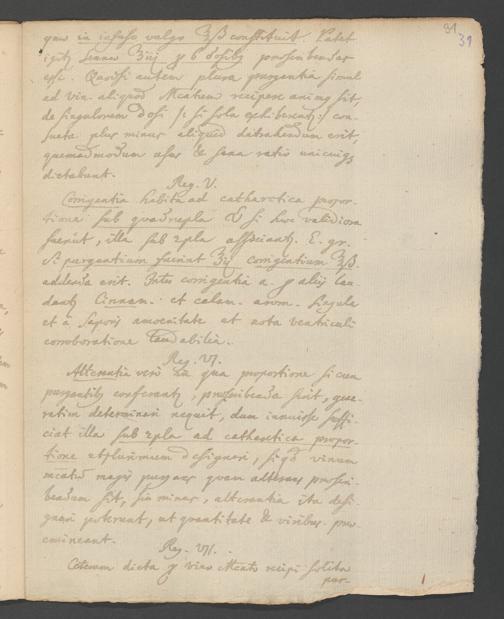 31
39
quae in infuso vulgo ℥ß constituit. Patet
igitur Sennae ℥iij p 6 dosibus praescribendas
esse. Quodsi autem plura purgantia simul
ad vin. aliquod Mcatum recipere animus sit,
de singulorum dosi /: si sola exhiberentur :/ con-
sueta plus minus aliquid detrahendum erit,
quemadmodum usus & sana ratio unicuiq
dictabunt.
Reg. V.
Corrigentia habita ad cathartica propor-
tione sub quadrupla & si haec validiora
fuerint, illa sub 2pla adsciscantur. E. gr.
Si purgantium fuerint ℥ij corrigentium ℥ß
addenda erit. Inter corrigentia a. p aliis lau-
dantur Cinnam. et calam. arom. singula
et a saporis amoenitate et nota ventriculi
corroboratione laudabilia.
Reg. VI.
Alterantia vero in qua proportione si cum
purgantibus conferantur, praescribenda sint, quae-
ratim determinari nequit, dum innuisse suffi-
ciat illa sub 2pla ad cathartica propor-
tione utplurimum designari, si qd vinum
mcatum magis purgans quam alterans praescri-
bendum sit, sin minus, alterantia ita desi-
gnari poterunt, ut quantitate & viribus prae-
emineant.
Reg. VII.
Ceterum dicta p vino Mcato recipi solita
pur-